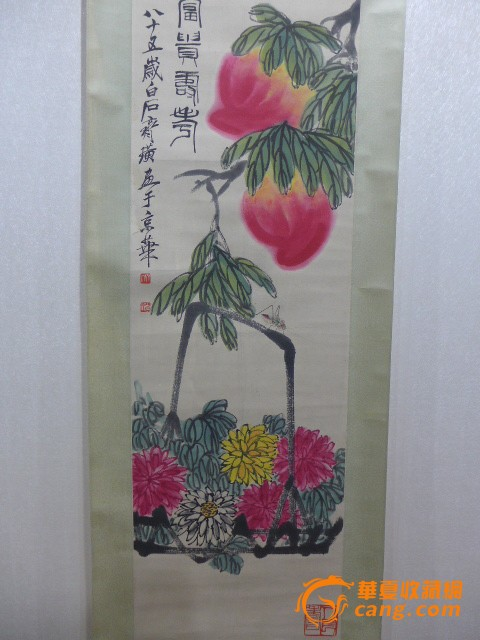 富貴壽考
八十五歲白石齊璜畫于京華
華夏收藏網
cang.com